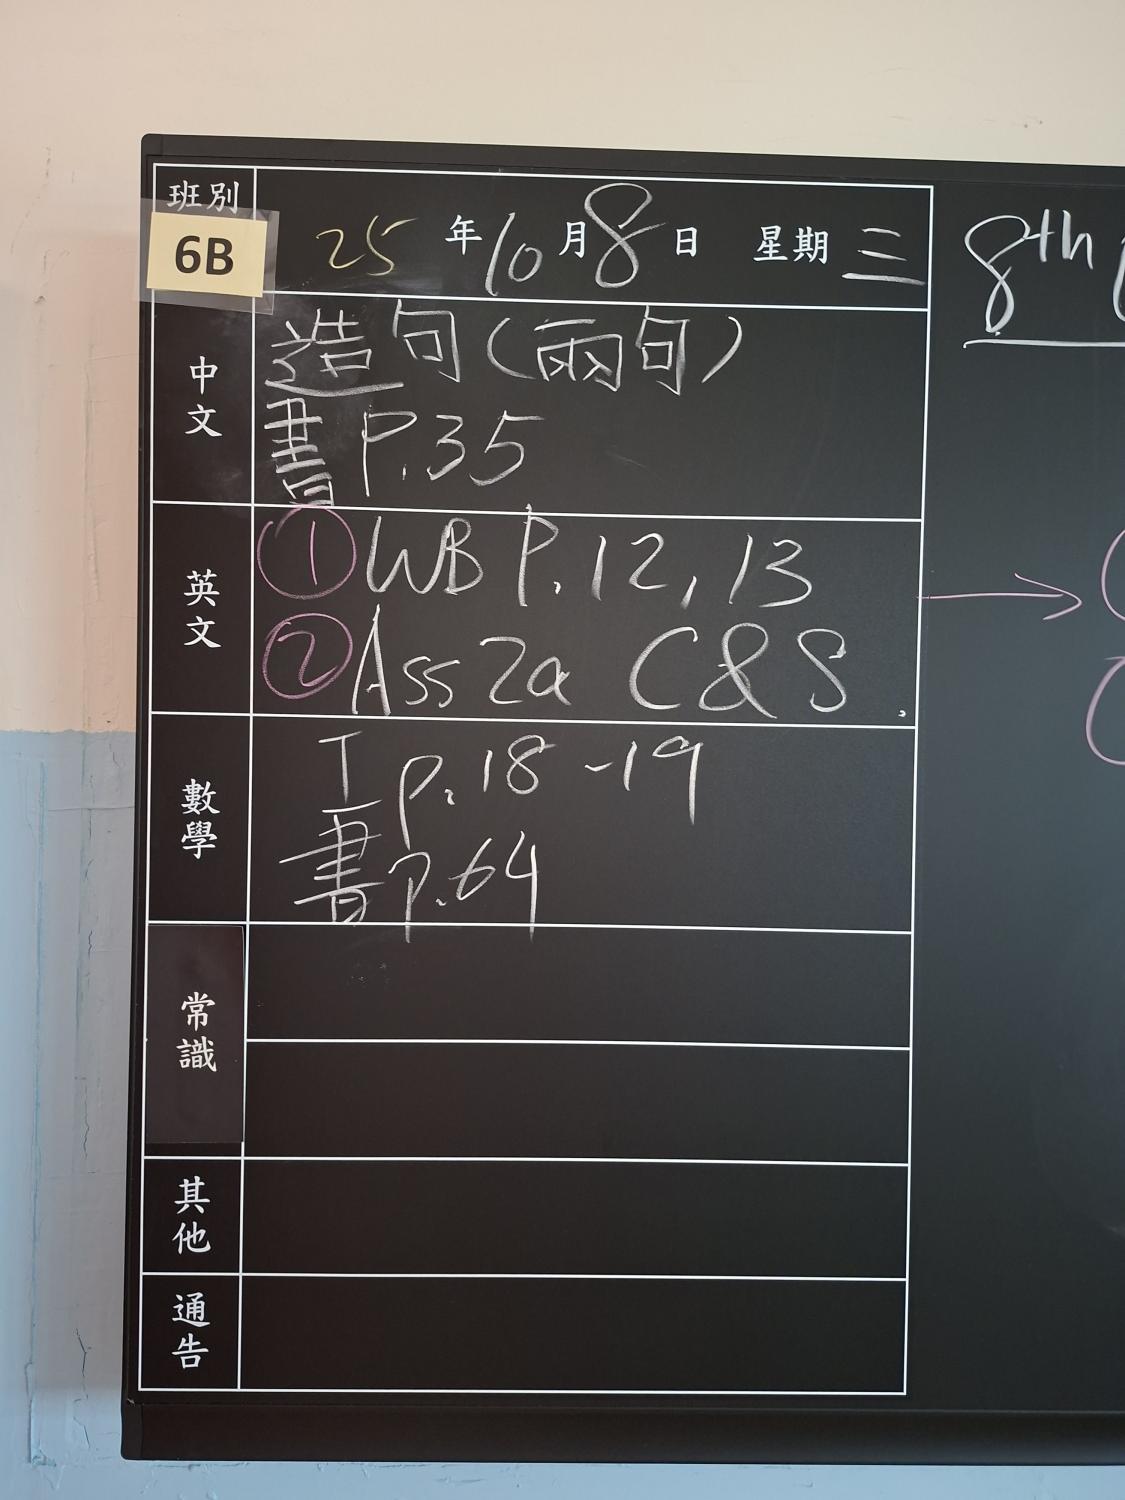 班別
6B
25年10月8日 星期三
中文
造句(兩句)
書 P.35
英文
① WB P.12, 13
② Ass 2a C&S.
數學
工 p.18-19
書 p.64
常識
其他
通告
8th